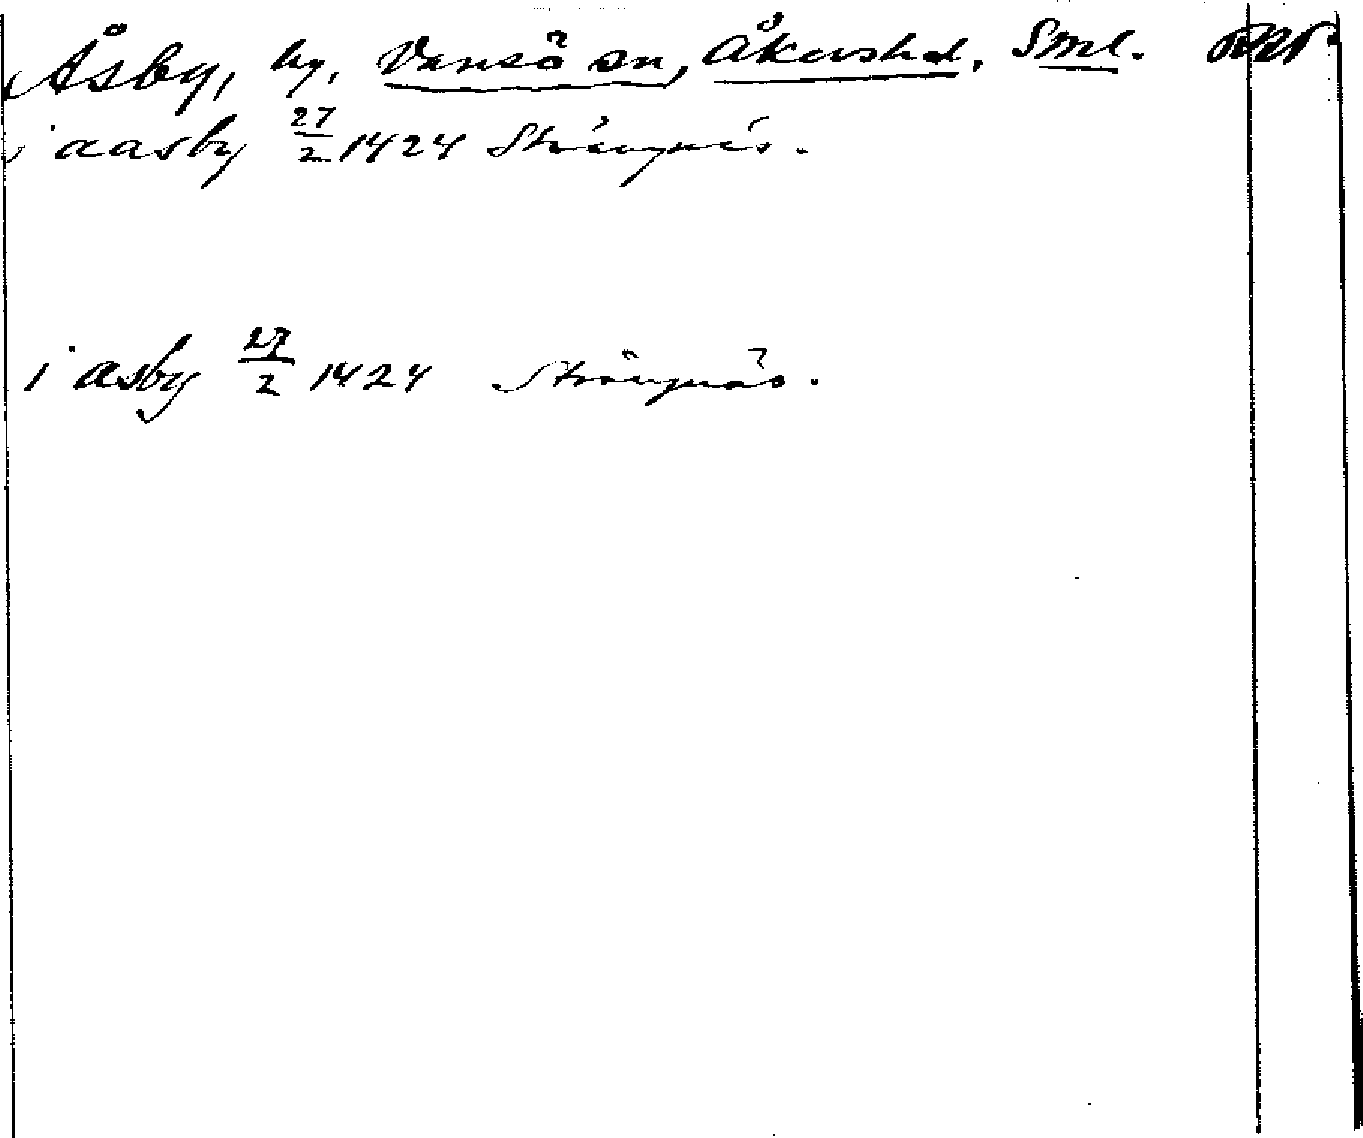 Åsby, by, Vansö sn, Åkershd. Sml.
i aasby 27/2 1424 Strängnäs.
i asby 27/2 1424 Strängnäs.